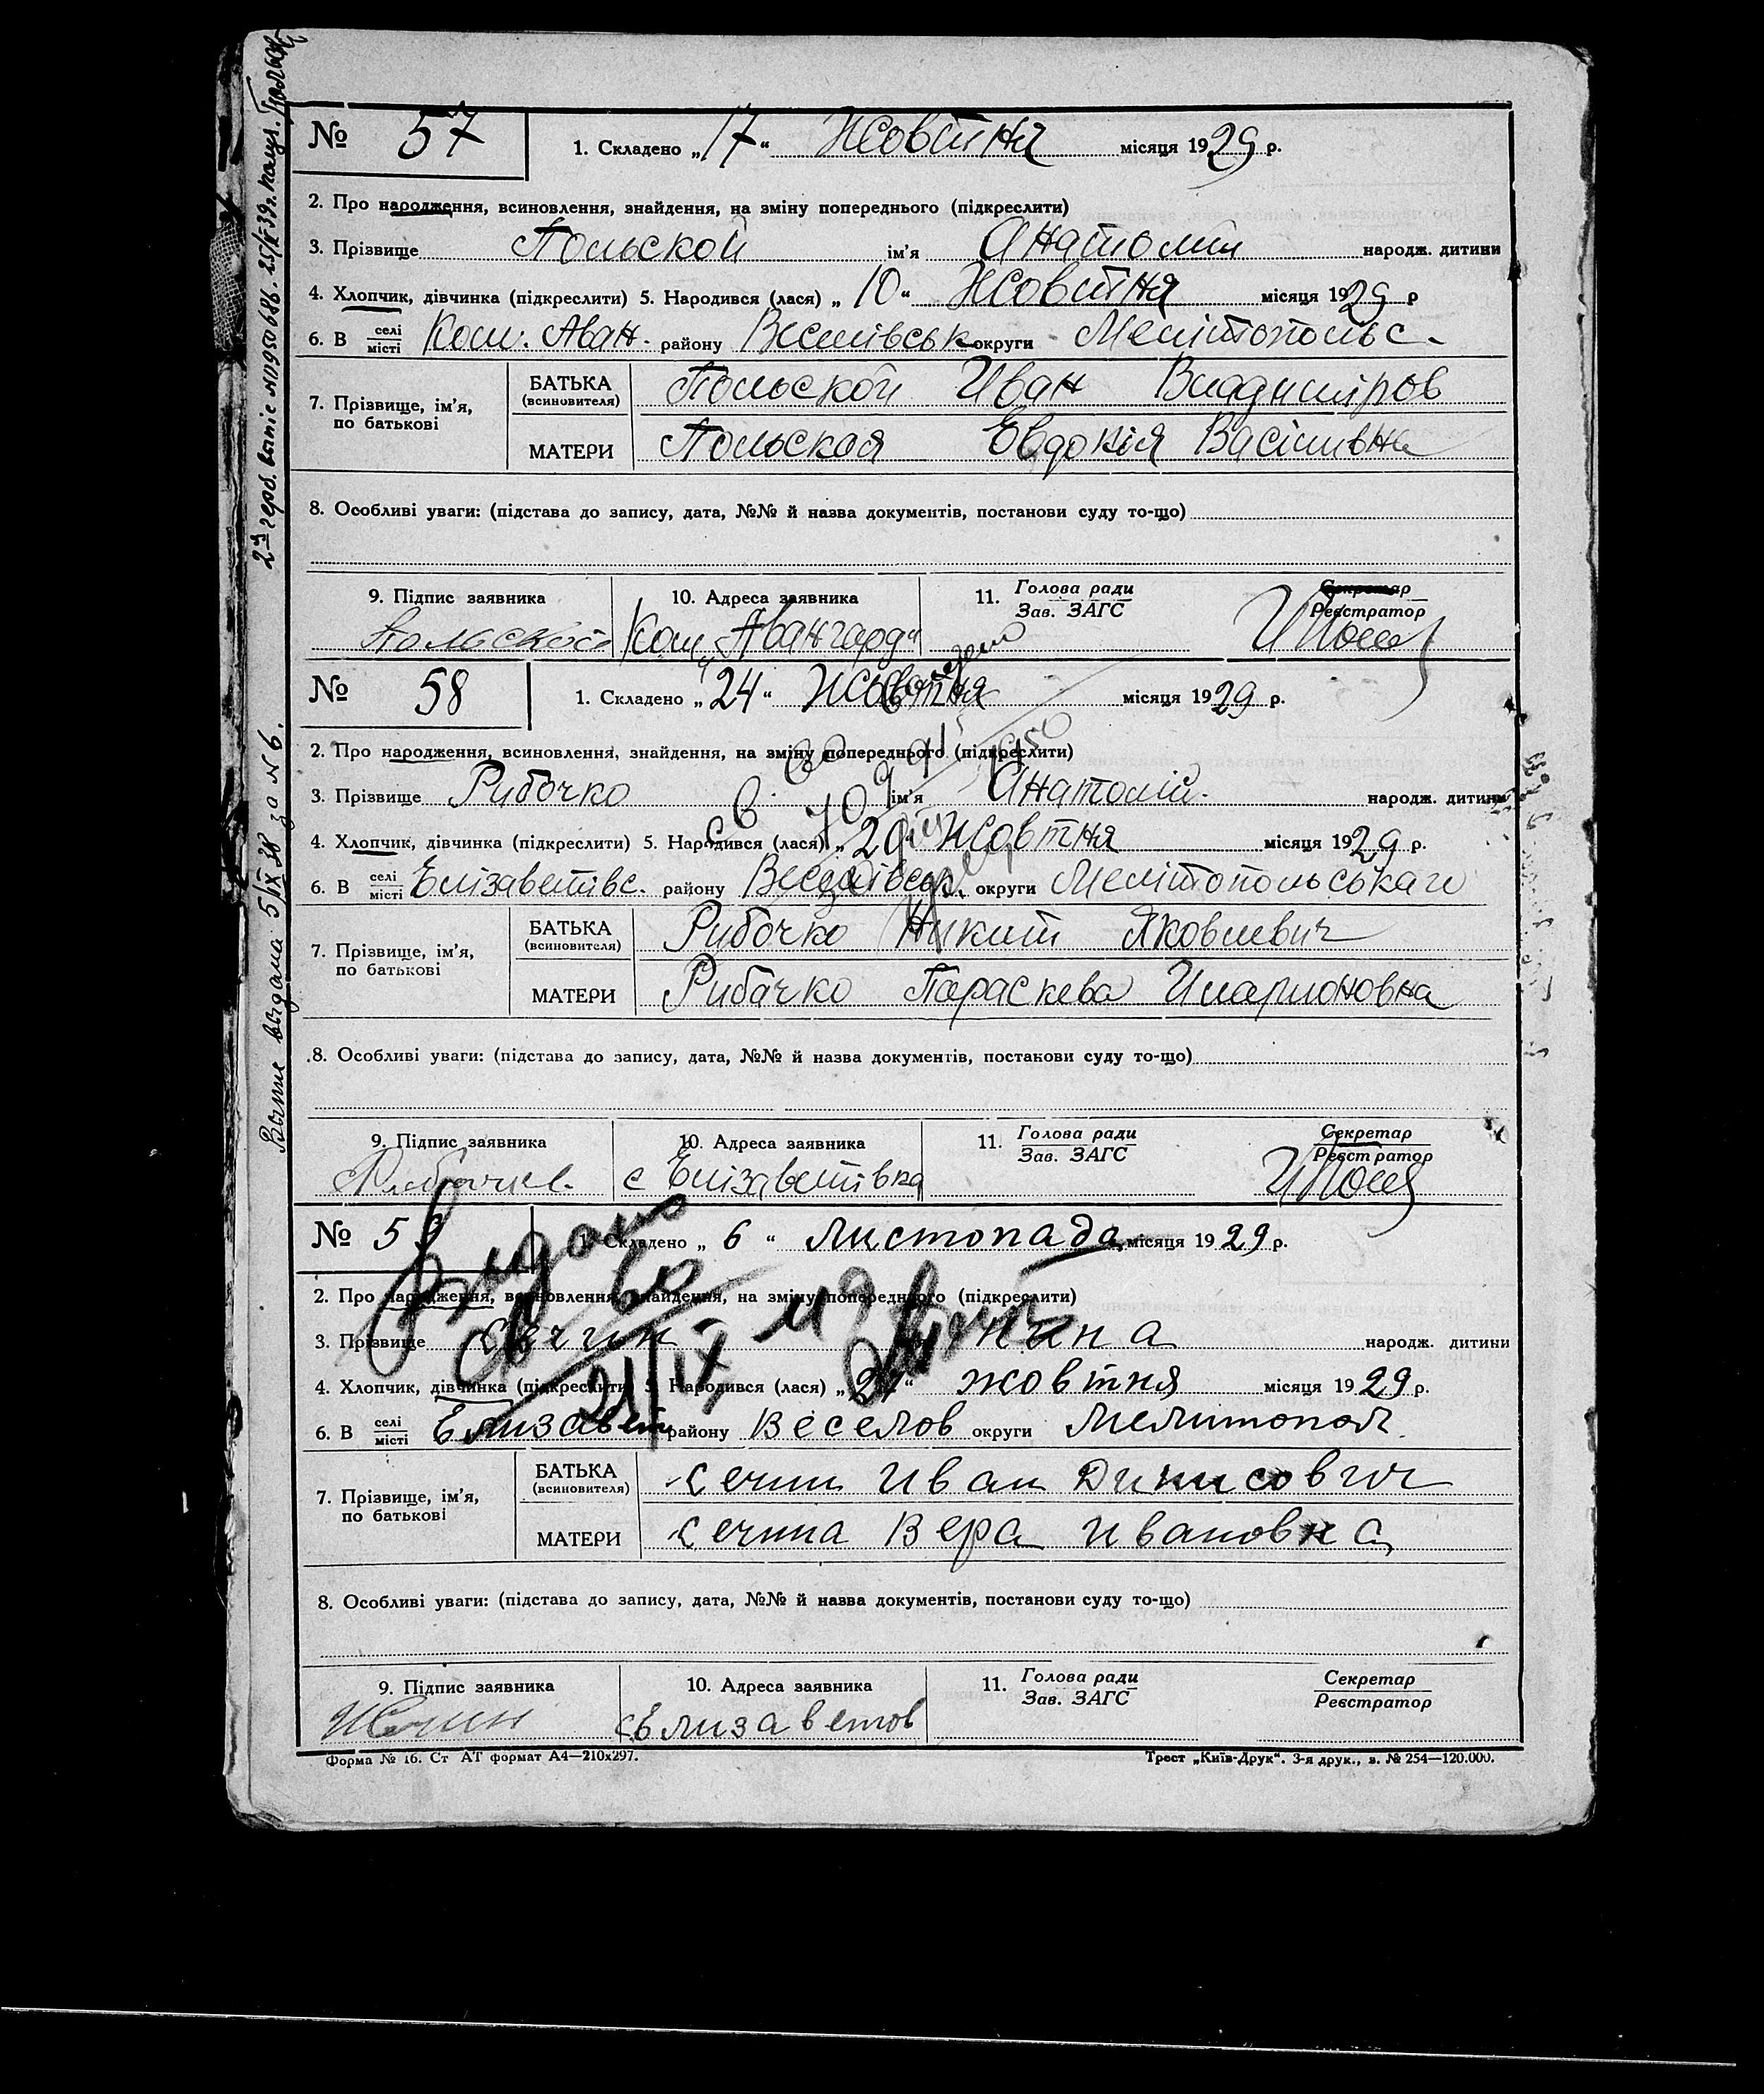 № 57 1. Складено „17“ Жовтня місяця 1929 р.
2. Про народження, всиновлення, знайдення, на зміну попереднього (підкреслити)
3. Прізвище Польской ім'я Анатолий народж. дитини
4. Хлопчик, дівчинка (підкреслити) 5. Народився (лася) „10“ Жовтня місяця 1929 р
6. В селі місті Ком. Аван. району Веселівськ округи Мелітопольс.
7. Прізвище, ім'я, по батькові
БАТЬКА (всиновителя) Польской Иван Владиміров
МАТЕРИ Польская Евдокія Васілівна
8. Особливі уваги: (підстава до запису, дата, №№ й назва документів, постанови суду то-що)
9. Підпис заявника 10. Адреса заявника 11. Голова ради Зав. ЗАГС Секретар Реєстратор
Польской Ком „Авангард“
№ 58 1. Складено „24“ Жовтня місяця 1929 р.
2. Про народження, всиновлення, знайдення, на зміну попереднього (підкреслити)
3. Прізвище Рибочко ім'я Анатолій. народж. дитини
4. Хлопчик, дівчинка (підкреслити) 5. Народився (лася) „20“ Жовтня місяця 1929 р.
6. В селі місті Елізаветівс. району Веселівськ. округи Мелітопольськаго
7. Прізвище, ім'я, по батькові
БАТЬКА (всиновителя) Рибочко Никит Яковлевич
МАТЕРИ Рибачко Параскева Иларионовна
8. Особливі уваги: (підстава до запису, дата, №№ й назва документів, постанови суду то-що)
9. Підпис заявника 10. Адреса заявника 11. Голова ради Зав. ЗАГС Секретар Реєстратор
с Елізаветівка
№ 59 1. Складено „6“ листопада місяця 1929 р.
2. Про народження, всиновлення, знайдення, на зміну попереднього (підкреслити)
3. Прізвище Сечин Нина народж. дитини
4. Хлопчик, дівчинка (підкреслити) 5. Народився (лася) жовтня місяця 1929 р.
6. В селі місті Елизавет району Веселов округи Мелитопол.
7. Прізвище, ім'я, по батькові
БАТЬКА (всиновителя) Сечин Иван Динисович
МАТЕРИ Сечина Вера Ивановна
8. Особливі уваги: (підстава до запису, дата, №№ й назва документів, постанови суду то-що)
9. Підпис заявника 10. Адреса заявника 11. Голова ради Зав. ЗАГС Секретар Реєстратор
с Елизаветов
Форма № 16. Ст АТ формат А4—210х297. Трест „Київ-Друк“. 3-я друк., з. № 254—120.000.